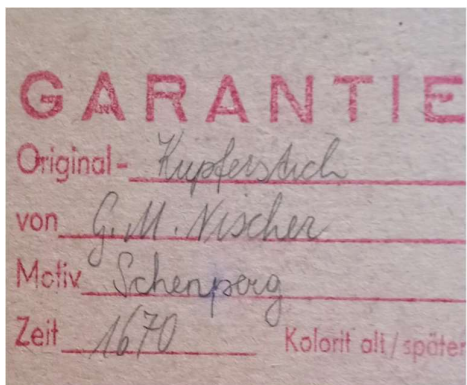 GARANTIE
Original- Kupferstich
von G. M. Vischer
Motiv Schenperg
Zeit 1670 Kolorit alt/später